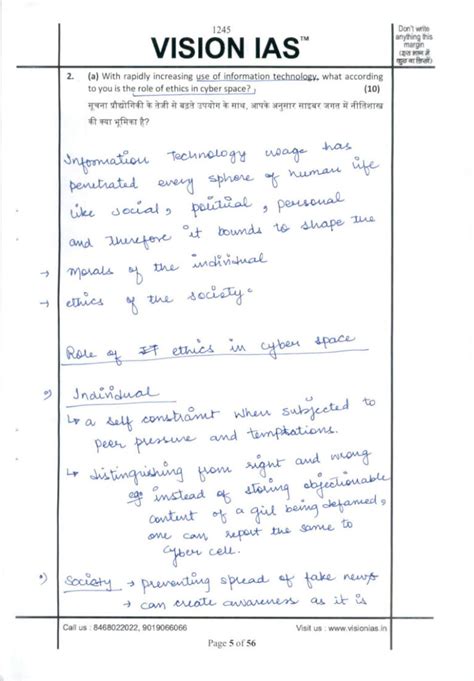 1245
VISION IAS™
Don't write
anything this
margin
(इस भाग में
कुछ ना लिखें)
2. (a) With rapidly increasing use of information technology, what according
to you is the role of ethics in cyber space? (10)
सूचना प्रौद्योगिकी के तेजी से बढ़ते उपयोग के साथ, आपके अनुसार साइबर जगत में नीतिशास्त्र
की क्या भूमिका है?
Information Technology usage has
penetrated every sphere of human life
like social, political, personal
and therefore it bounds to shape the
→ Morals of the individual
→ ethics of the society.
Role of ethics in cyber space
Individual
↳ a self constraint when subjected to
peer pressure and temptations.
↳ distinguishing from right and wrong
eg: instead of storing objectionable
content of a girl being defamed,
one can report the same to
cyber cell.
Society → preventing spread of fake news
→ can create awareness as it is
Call us : 8468022022, 9019066066
Visit us : www.visionias.in
Page 5 of 56